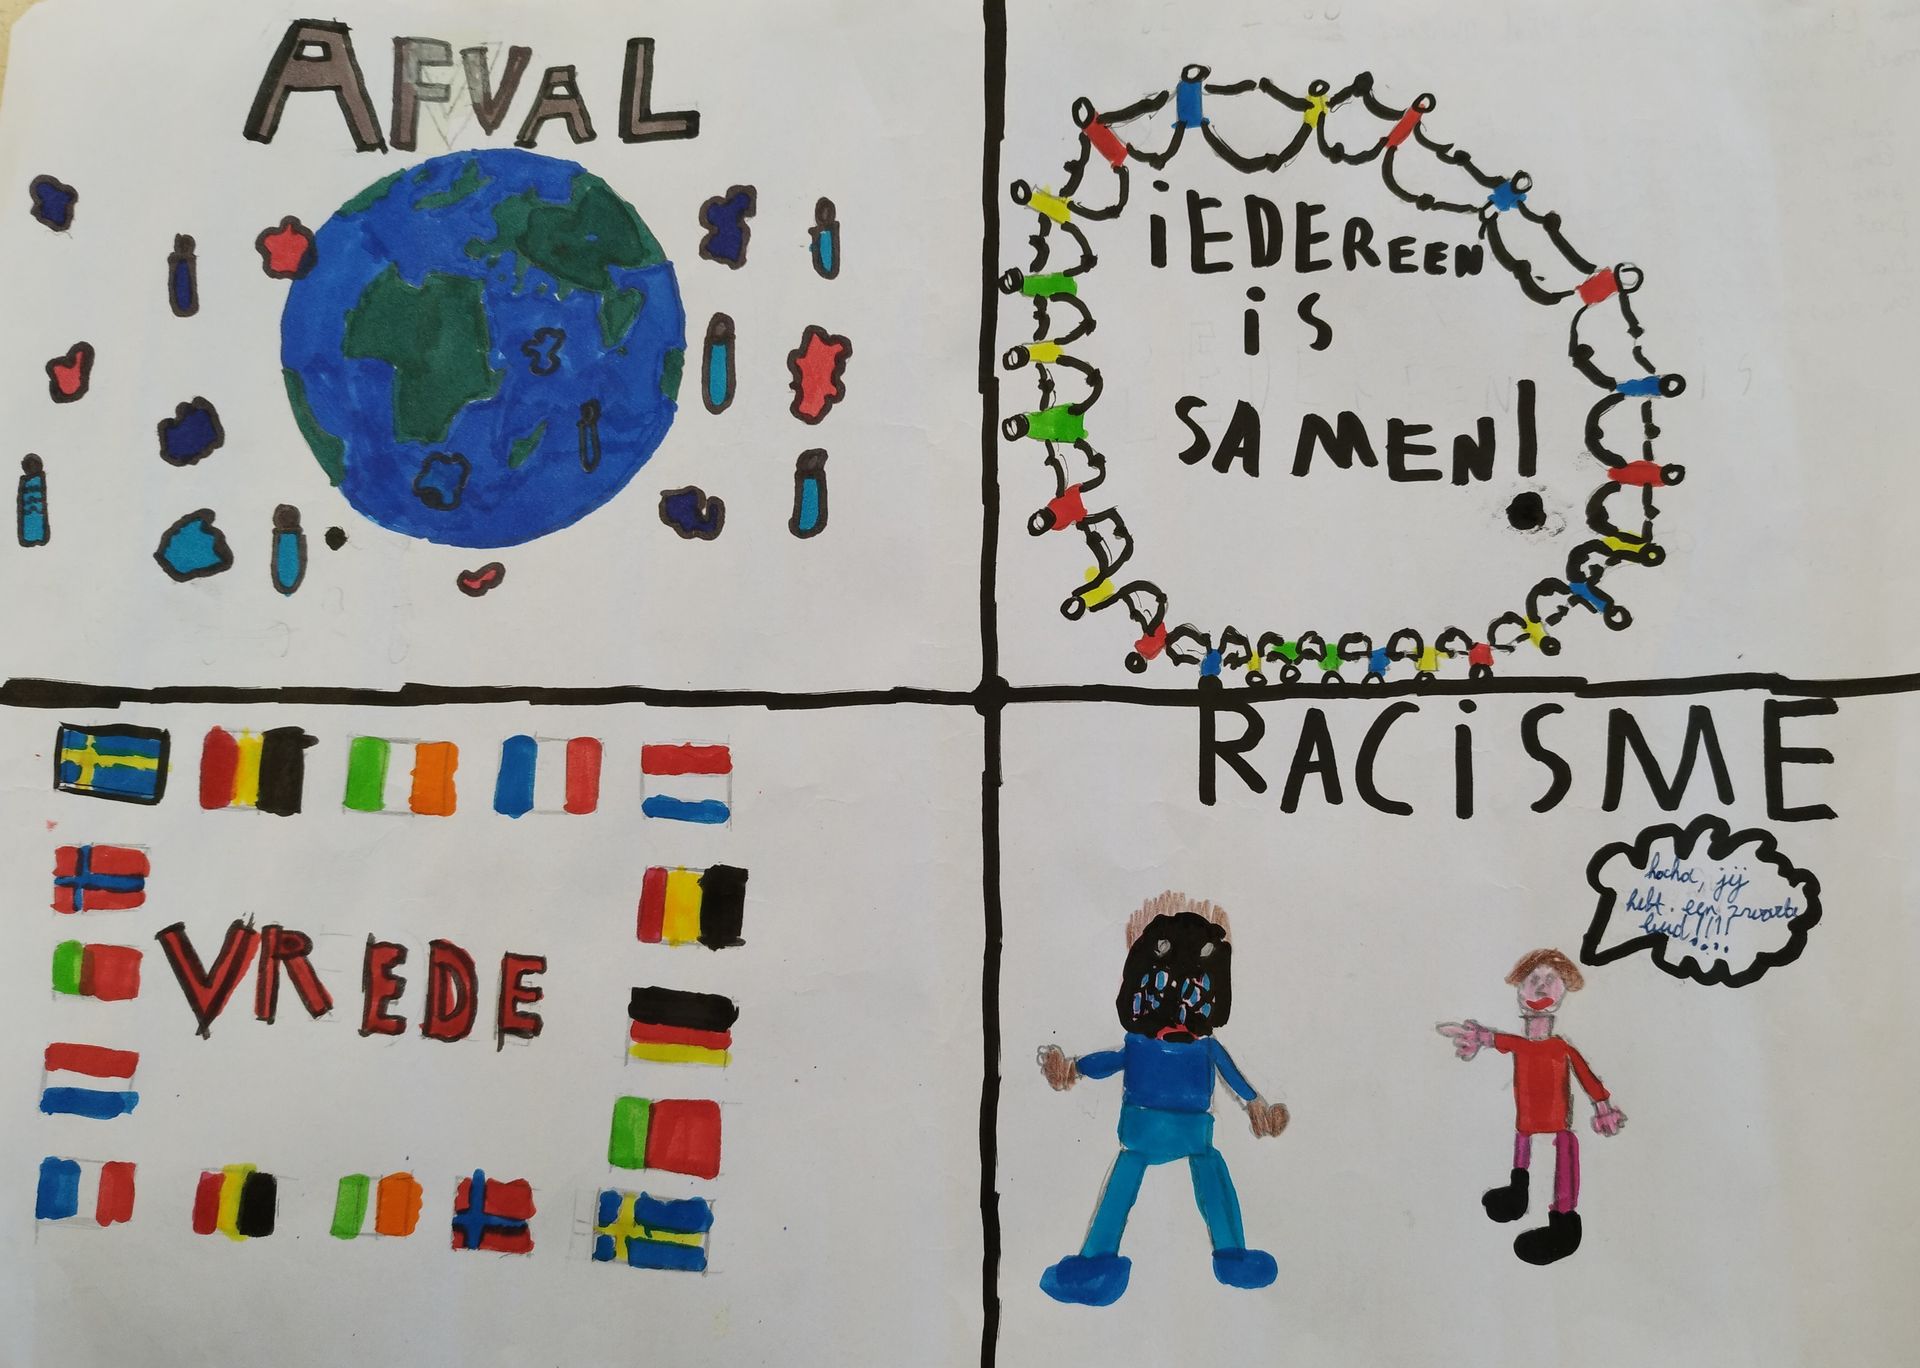 AFVAL
iEDEREEN
iS
SAMEN!
VREDE
RACiSME
haha, jij
hebt een zwarte
huid!!!!